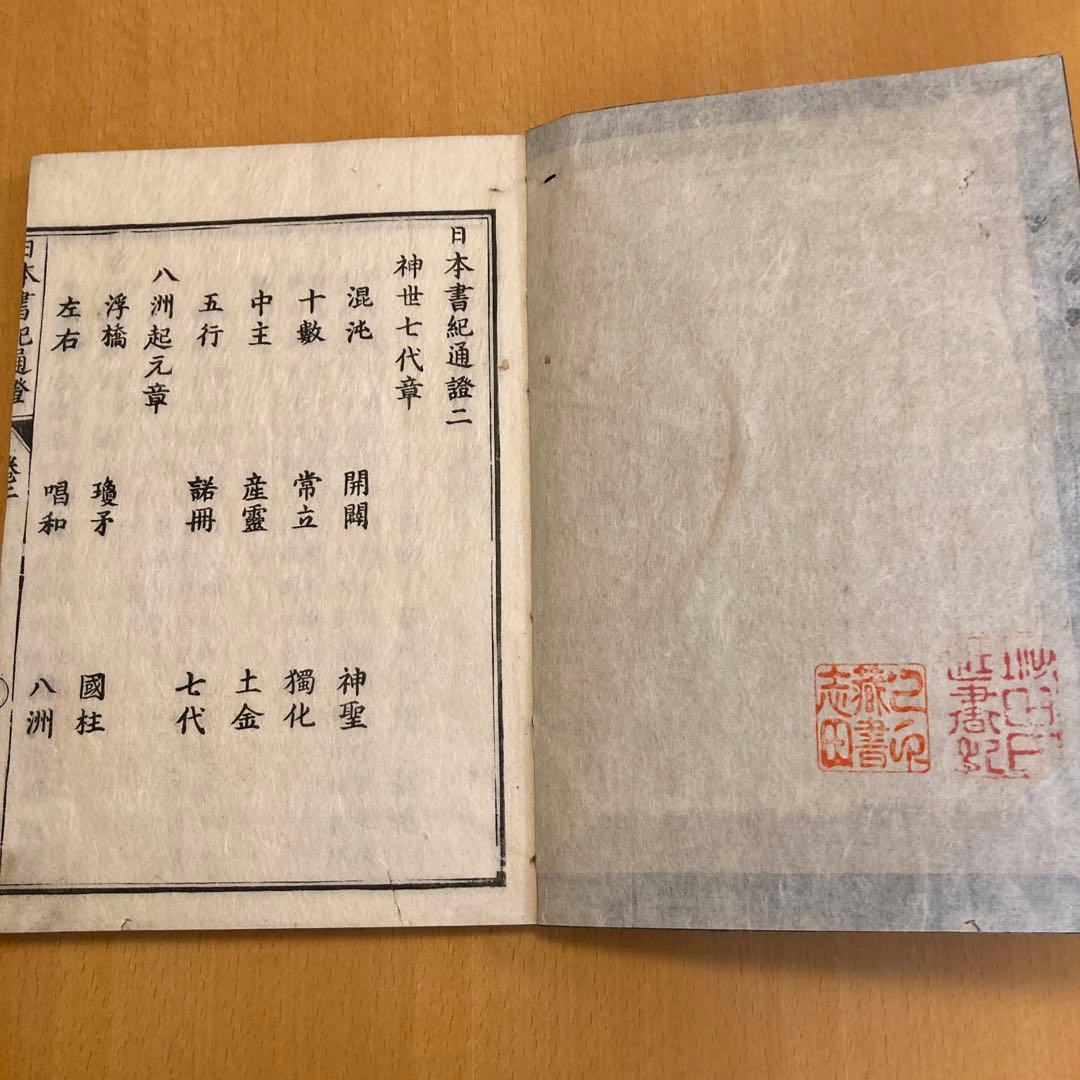 日本書紀通證二
神世七代章
混沌 開闢 神聖
十數 常立 獨化
中主 産靈 土金
五行 諾冊 七代
八洲起元章
浮橋 瓊矛 國柱
左右 唱和 八洲
日本書紀通證 卷二
藏書
志田